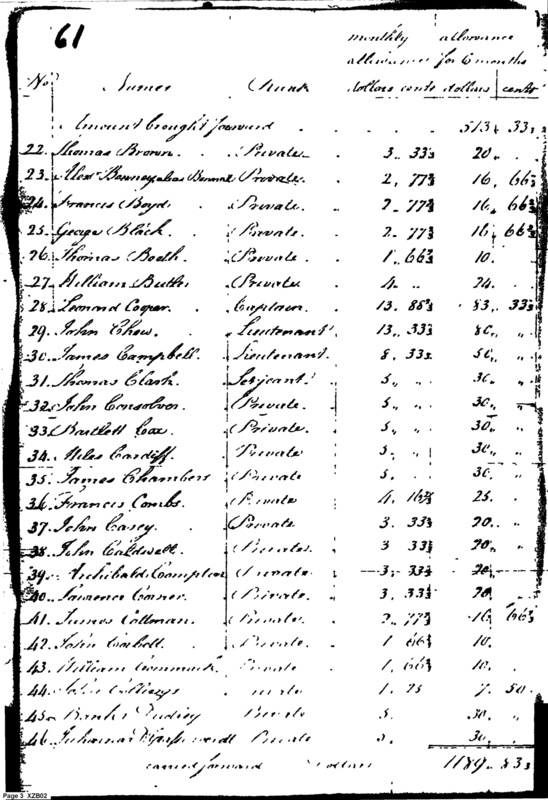 61
monthly allowance
allowance for 6 months
No. Names Rank dollars cents dollars cents
Amount brought forward 513 33⅓
22. Thomas Brown Private 3 33⅓ 20
23. Alexr Private 2 77⅔ 16 66⅔
24. Francis Boyd Private 2 77⅔ 16 66⅔
25. George Black Private 2 77⅔ 16 66⅔
26. Thomas Booth Private 1 66⅔ 10
27. William Butler Private 4 24
28. Leonard Cooper Captain 13 83, 33⅓
29. John Chew Lieutenant 13 33⅓ 80
30. James Campbell Lieutenant 8 33⅓ 50
31. Thomas Clark Serjeant 5 30
32. John Consolver Private 5 30
33. Bartlett Cox Private 5 30
34. Miles Cardiff Private 5 30
35. James Chambers Private 5 30
36. Francis Combs Private 4 16⅔ 25
37. John Casey Private 3 33⅓ 20
38. John Caldwell Private 3 33⅓ 20
39. Archibald Private 3 33⅓ 20
40. Lawrence Private 3 33⅓ 20
41. James Private 2 77⅔ 16 66⅔
42. John Private 1 66⅔ 10
43. William Private 1 66⅔ 10
44. 1 25 7 50
45. Banks Dudley Private 5 30
46. Private 5 30
carried forward dollars 1189 83⅓
Page 5 XZB02